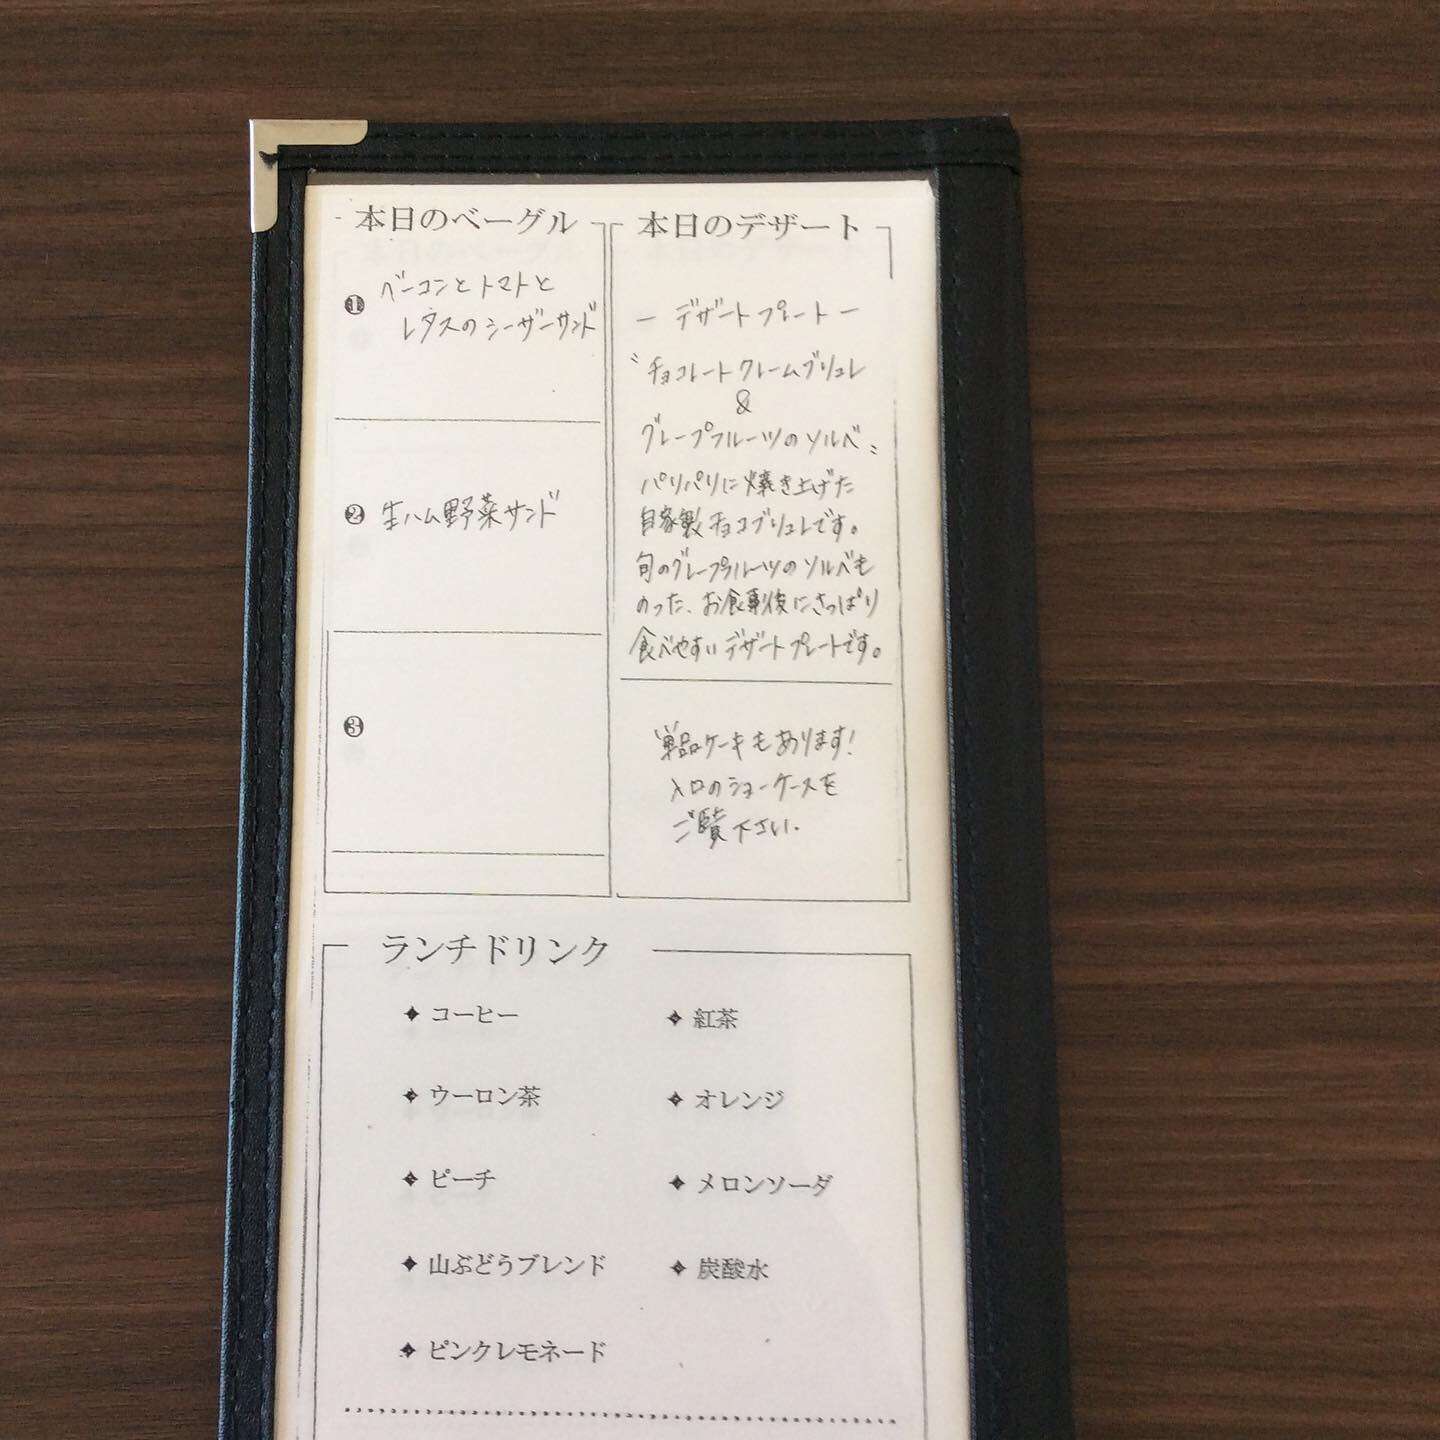 本日のベーグル
❶ ベーコンとトマトと
レタスのシーザーサンド
❷ 生ハム野菜サンド
❸
本日のデザート
ー デザートプレート ー
〝チョコレートクレームブリュレ
&
グレープフルーツのソルベ〟
パリパリに焼き上げた
自家製チョコブリュレです。
旬のグレープフルーツのソルベも
のった、お食事後にさっぱり
食べやすいデザートプレートです。
単品ケーキもあります!
入口のショーケースを
ご覧下さい.
ランチドリンク
コーヒー
紅茶
ウーロン茶
オレンジ
ピーチ
メロンソーダ
山ぶどうブレンド
炭酸水
ピンクレモネード